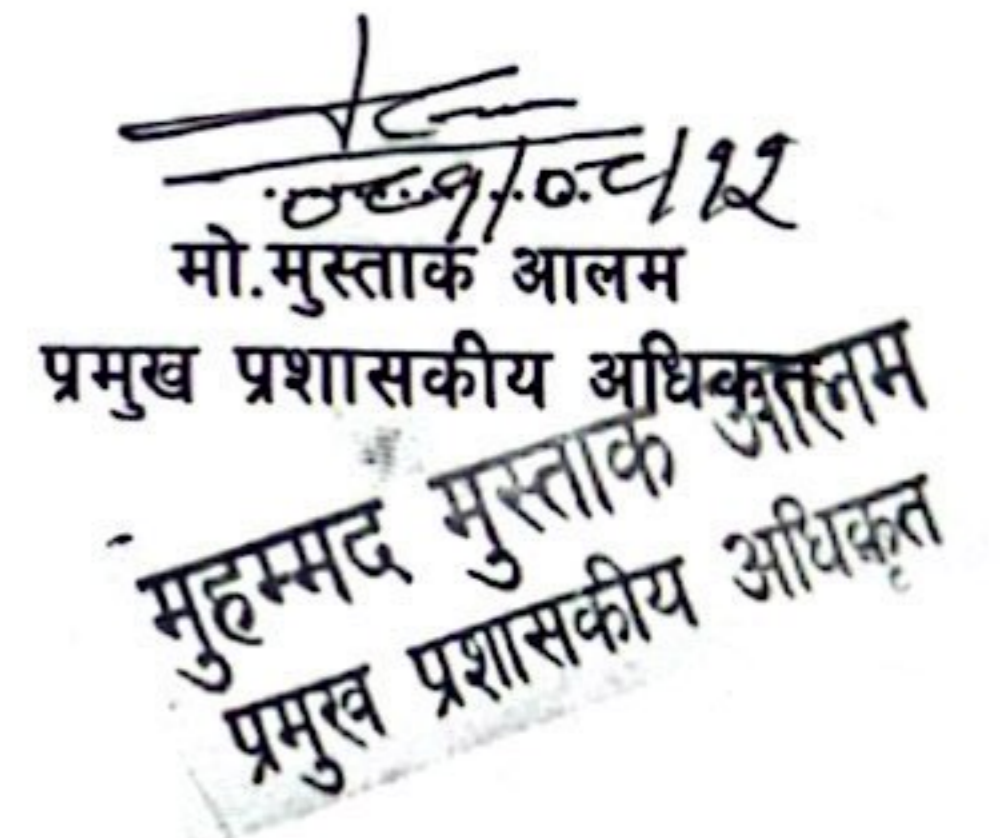 मो.मुस्ताक आलम
प्रमुख प्रशासकीय अधिकृत
मुहम्मद मुस्ताक आलम
प्रमुख प्रशासकीय अधिकृत